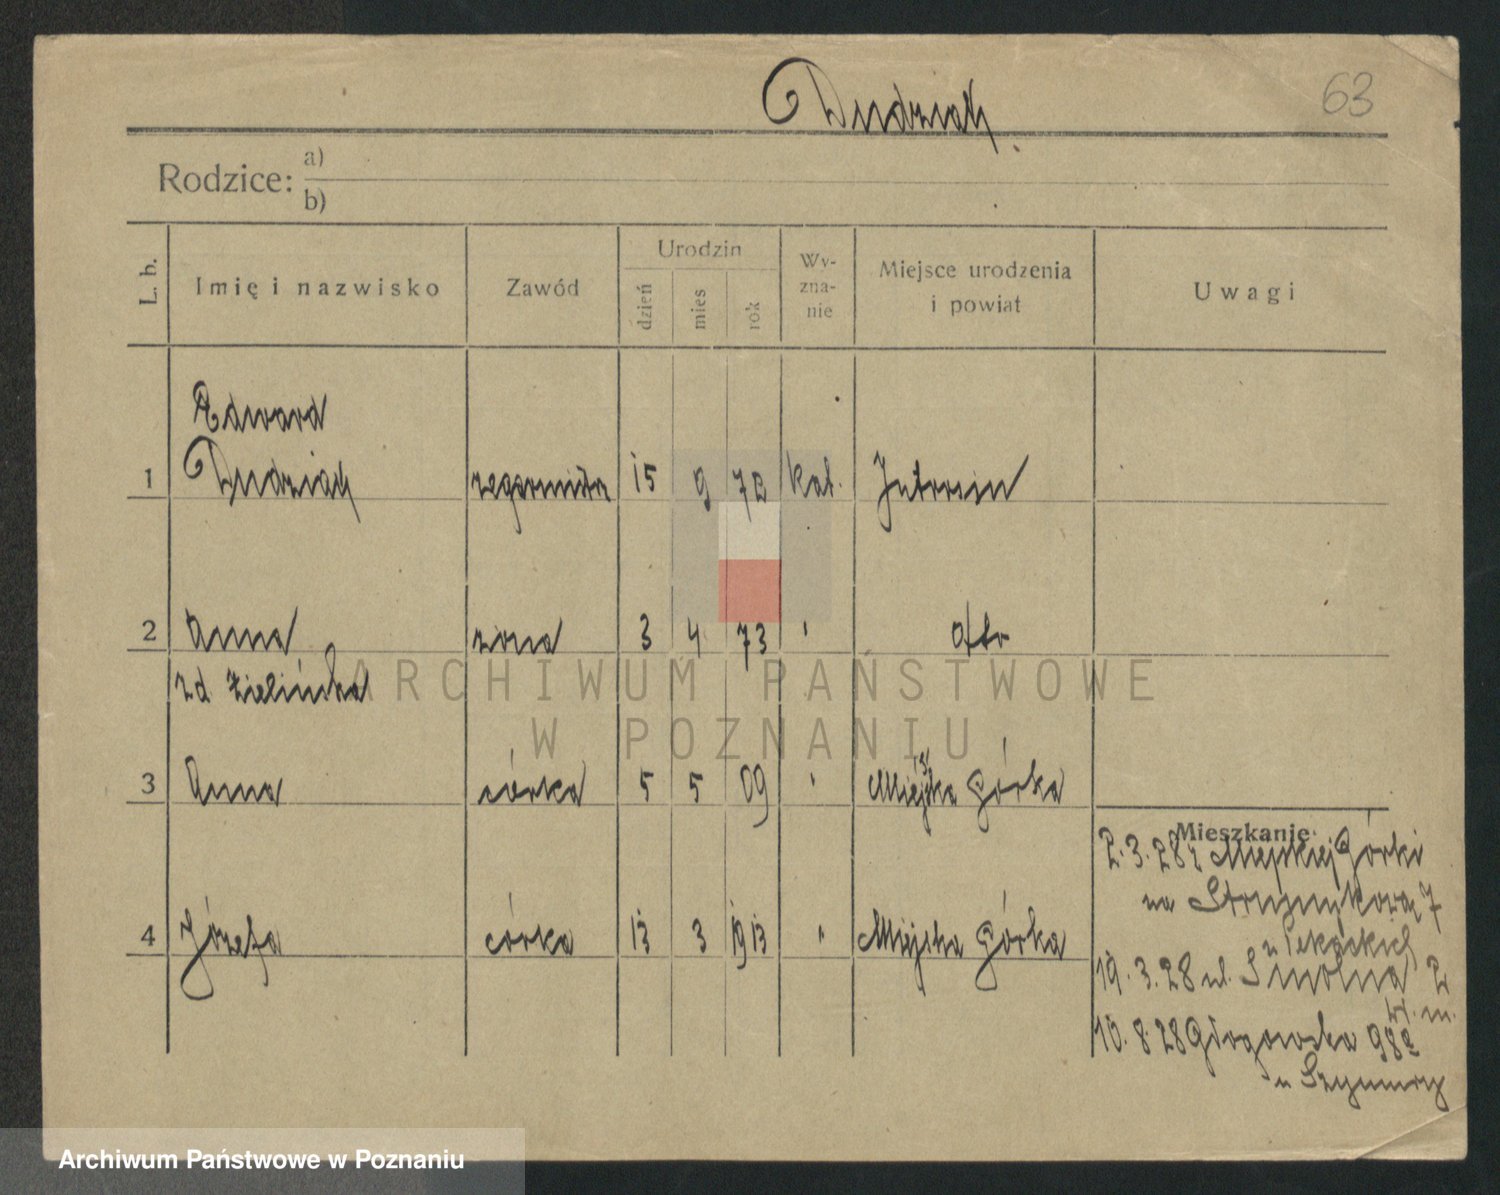 Dudziak
63
Rodzice:
a)
b)
L. b.
Imię i nazwisko
Zawód
Urodzin
dzień
mies
rok
Wy-
zna-
nie
Miejsce urodzenia
i powiat
Uwagi
Edward
1 Dudziak zegarmistrz 15 9 72 kat. Jutrosin
2 Anna żona 3 4 73 " dto
zd Zielińska
3 Anna córka 5 5 09 " Miejska Górka
4 Józefa córka 13 3 1913 " Miejska Górka
Mieszkanie:
2.3.28 z Miejskiej Górki
na 7
u
19.3.28 ul. Smolna 2
w. m.
10.8.28 Głogowska 98a
u
ARCHIWUM PAŃSTWOWE
W POZNANIU
Archiwum Państwowe w Poznaniu